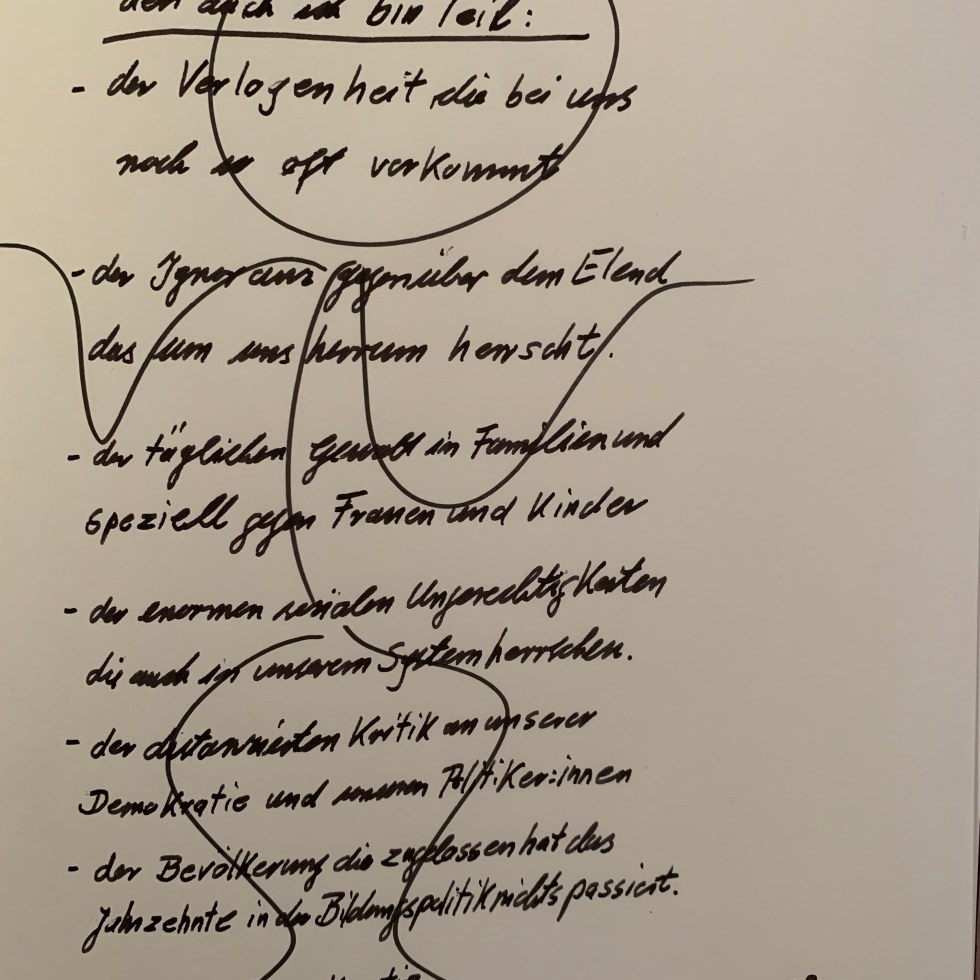 denn auch ich bin Teil:
- der Verlogenheit die bei uns
noch so oft vorkommt
- der Ignoranz gegenüber dem Elend
das um uns herrum herrscht.
- der täglichen Gewalt in Familien und
speziell gegen Frauen und Kinder
- der enormen sozialen Ungerechtigkeiten
die auch in unserem System herrschen.
- der distanzierten Kritik an unserer
Demokratie und unseren Politiker:innen
- der Bevölkerung die zugelassen hat das
Jahrzehnte in der Bildungspolitik nichts passiert.